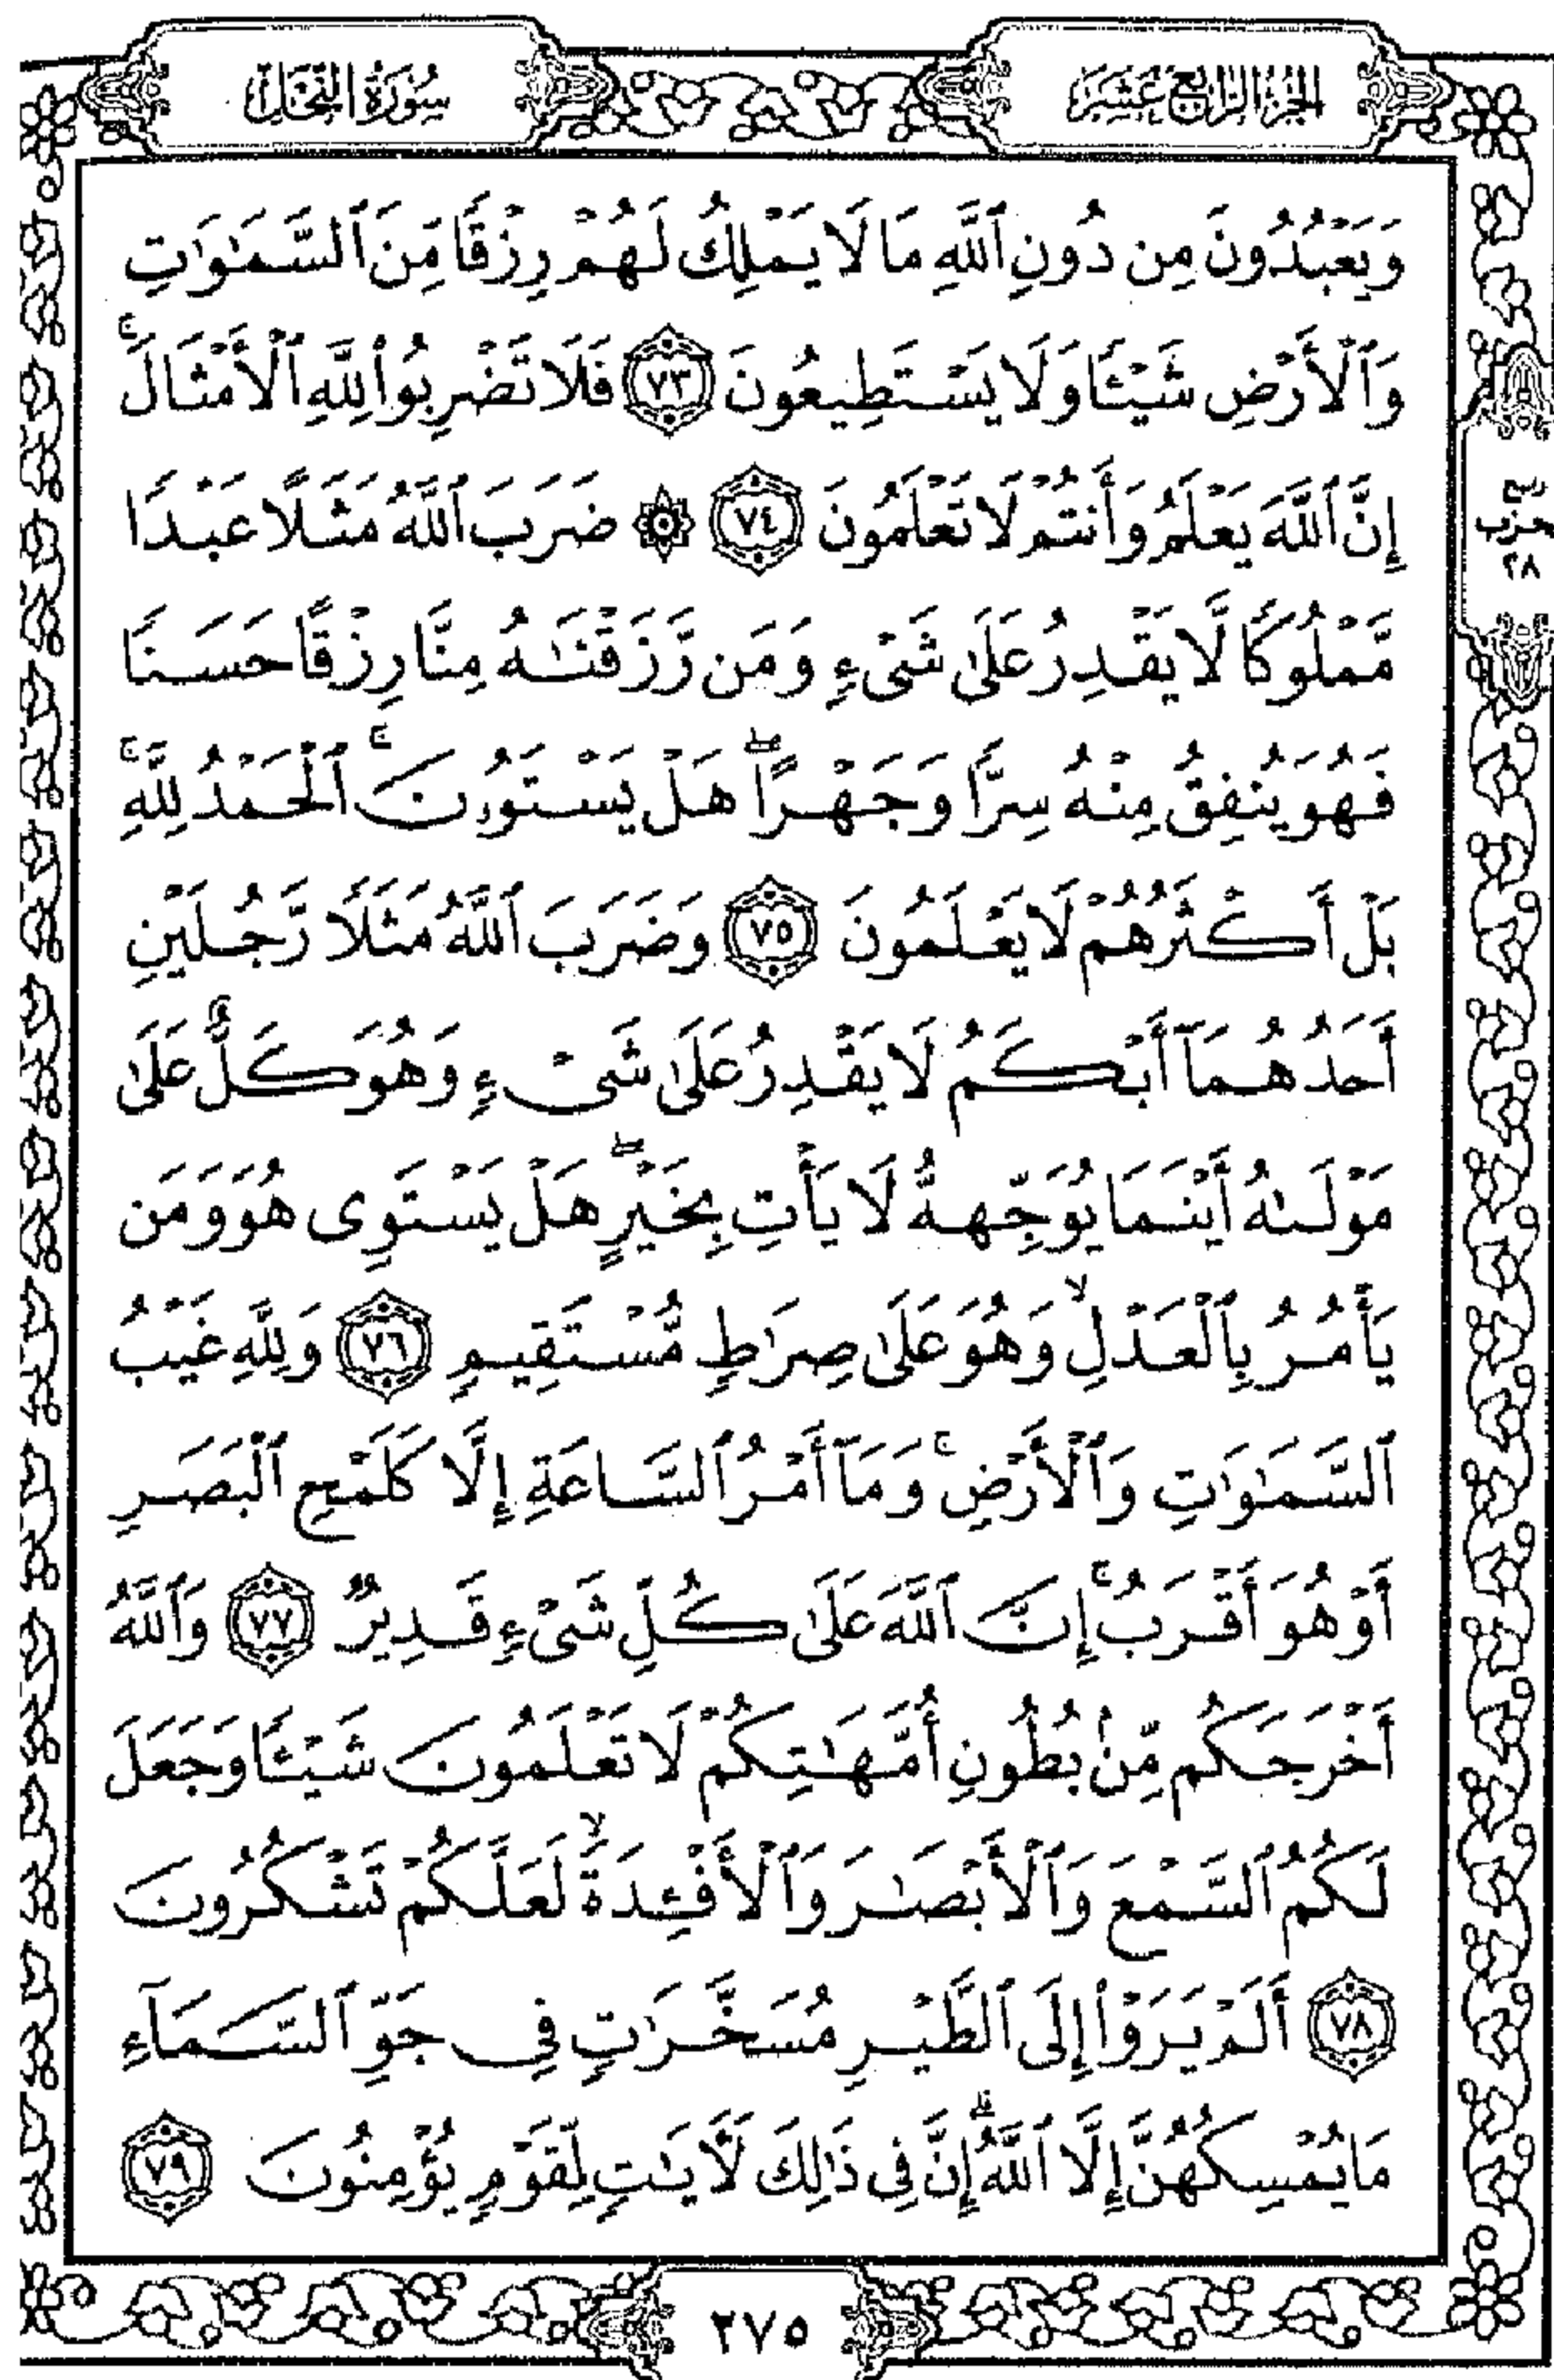 الجزء الرابع عشر
سورة النحل
وَيَعْبُدُونَ مِن دُونِ ٱللَّهِ مَا لَا يَمْلِكُ لَهُمْ رِزْقًا مِّنَ ٱلسَّمَٰوَٰتِ
وَٱلْأَرْضِ شَيْـًٔا وَلَا يَسْتَطِيعُونَ ٧٣ فَلَا تَضْرِبُوا۟ لِلَّهِ ٱلْأَمْثَالَ ۚ
إِنَّ ٱللَّهَ يَعْلَمُ وَأَنتُمْ لَا تَعْلَمُونَ ٧٤ ۞ ضَرَبَ ٱللَّهُ مَثَلًا عَبْدًا
ربع
حزب
٢٨
مَّمْلُوكًا لَّا يَقْدِرُ عَلَىٰ شَىْءٍ وَمَن رَّزَقْنَٰهُ مِنَّا رِزْقًا حَسَنًا
فَهُوَ يُنفِقُ مِنْهُ سِرًّا وَجَهْرًا ۖ هَلْ يَسْتَوُۥنَ ۚ ٱلْحَمْدُ لِلَّهِ ۚ
بَلْ أَكْثَرُهُمْ لَا يَعْلَمُونَ ٧٥ وَضَرَبَ ٱللَّهُ مَثَلًا رَّجُلَيْنِ
أَحَدُهُمَآ أَبْكَمُ لَا يَقْدِرُ عَلَىٰ شَىْءٍ وَهُوَ كَلٌّ عَلَىٰ
مَوْلَىٰهُ أَيْنَمَا يُوَجِّههُّ لَا يَأْتِ بِخَيْرٍ ۖ هَلْ يَسْتَوِى هُوَ وَمَن
يَأْمُرُ بِٱلْعَدْلِ ۙ وَهُوَ عَلَىٰ صِرَٰطٍ مُّسْتَقِيمٍ ٧٦ وَلِلَّهِ غَيْبُ
ٱلسَّمَٰوَٰتِ وَٱلْأَرْضِ ۚ وَمَآ أَمْرُ ٱلسَّاعَةِ إِلَّا كَلَمْحِ ٱلْبَصَرِ
أَوْ هُوَ أَقْرَبُ ۚ إِنَّ ٱللَّهَ عَلَىٰ كُلِّ شَىْءٍ قَدِيرٌ ٧٧ وَٱللَّهُ
أَخْرَجَكُم مِّنۢ بُطُونِ أُمَّهَٰتِكُمْ لَا تَعْلَمُونَ شَيْـًٔا وَجَعَلَ
لَكُمُ ٱلسَّمْعَ وَٱلْأَبْصَٰرَ وَٱلْأَفْـِٔدَةَ ۙ لَعَلَّكُمْ تَشْكُرُونَ
٧٨ أَلَمْ يَرَوْا۟ إِلَى ٱلطَّيْرِ مُسَخَّرَٰتٍ فِى جَوِّ ٱلسَّمَآءِ
مَا يُمْسِكُهُنَّ إِلَّا ٱللَّهُ ۗ إِنَّ فِى ذَٰلِكَ لَءَايَٰتٍ لِّقَوْمٍ يُؤْمِنُونَ ٧٩
٢٧٥